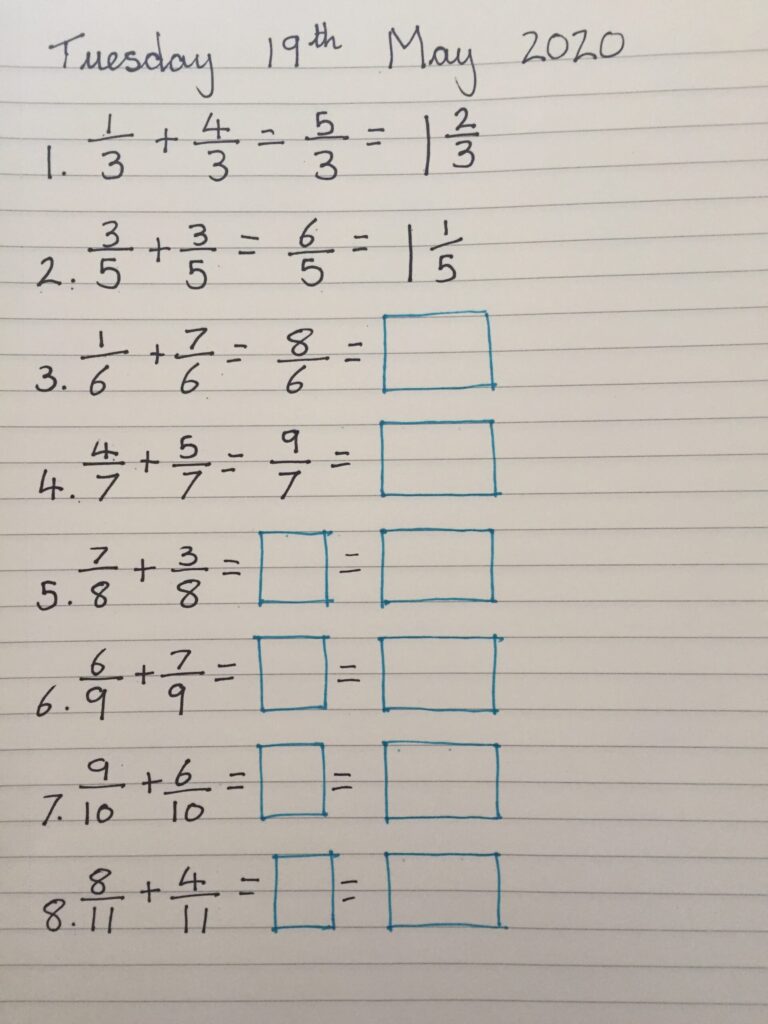 Tuesday 19th May 2020
1. 1/3 + 4/3 = 5/3 = 1 2/3
2. 3/5 + 3/5 = 6/5 = 1 1/5
3. 1/6 + 7/6 = 8/6 =
4. 4/7 + 5/7 = 9/7 =
5. 7/8 + 3/8 = =
6. 6/9 + 7/9 = =
7. 9/10 + 6/10 = =
8. 8/11 + 4/11 = =